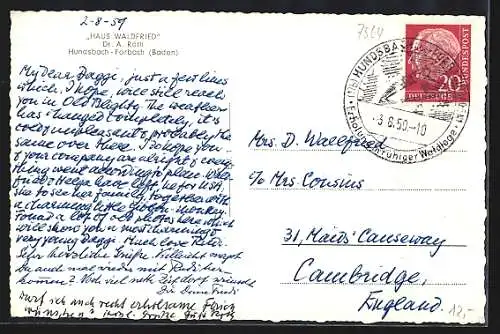 2-8-59
7564
"HAUS WALDFRIED"
Dr. A. Rößl
Hundsbach-Forbach (Baden)
My Dear Daggi, just a few lines
which, I hope, will still reach
you in Old Blighty. The weather
has changed completely, it is
cold unpleasant & probably the
same over there. I do hope you
& your company are alright & every-
thing went according to plan. Wal-
fried & Helga have left for USA,
to see her family, together with
a charming little
Found a lot of old photos here which
will show you a most charming &
very young Daggi. Much love
Sehr herzliche Grüße. Vielleicht
Du auch mal wieder mit hier
kommen? Noch viel nette wünscht
Dir Deine
Darf ich auch recht erholsame Ferien
wünschen herzl. Grüße
HUNDSBACH
-3.8.59.-10
Erholung in ruhiger Waldlage
20
DEUTSCHE BUNDESPOST
Mrs. D. Wallfried
c/o Mrs Cousins
31, Maids' Causeway
Cambridge,
England.
12,-